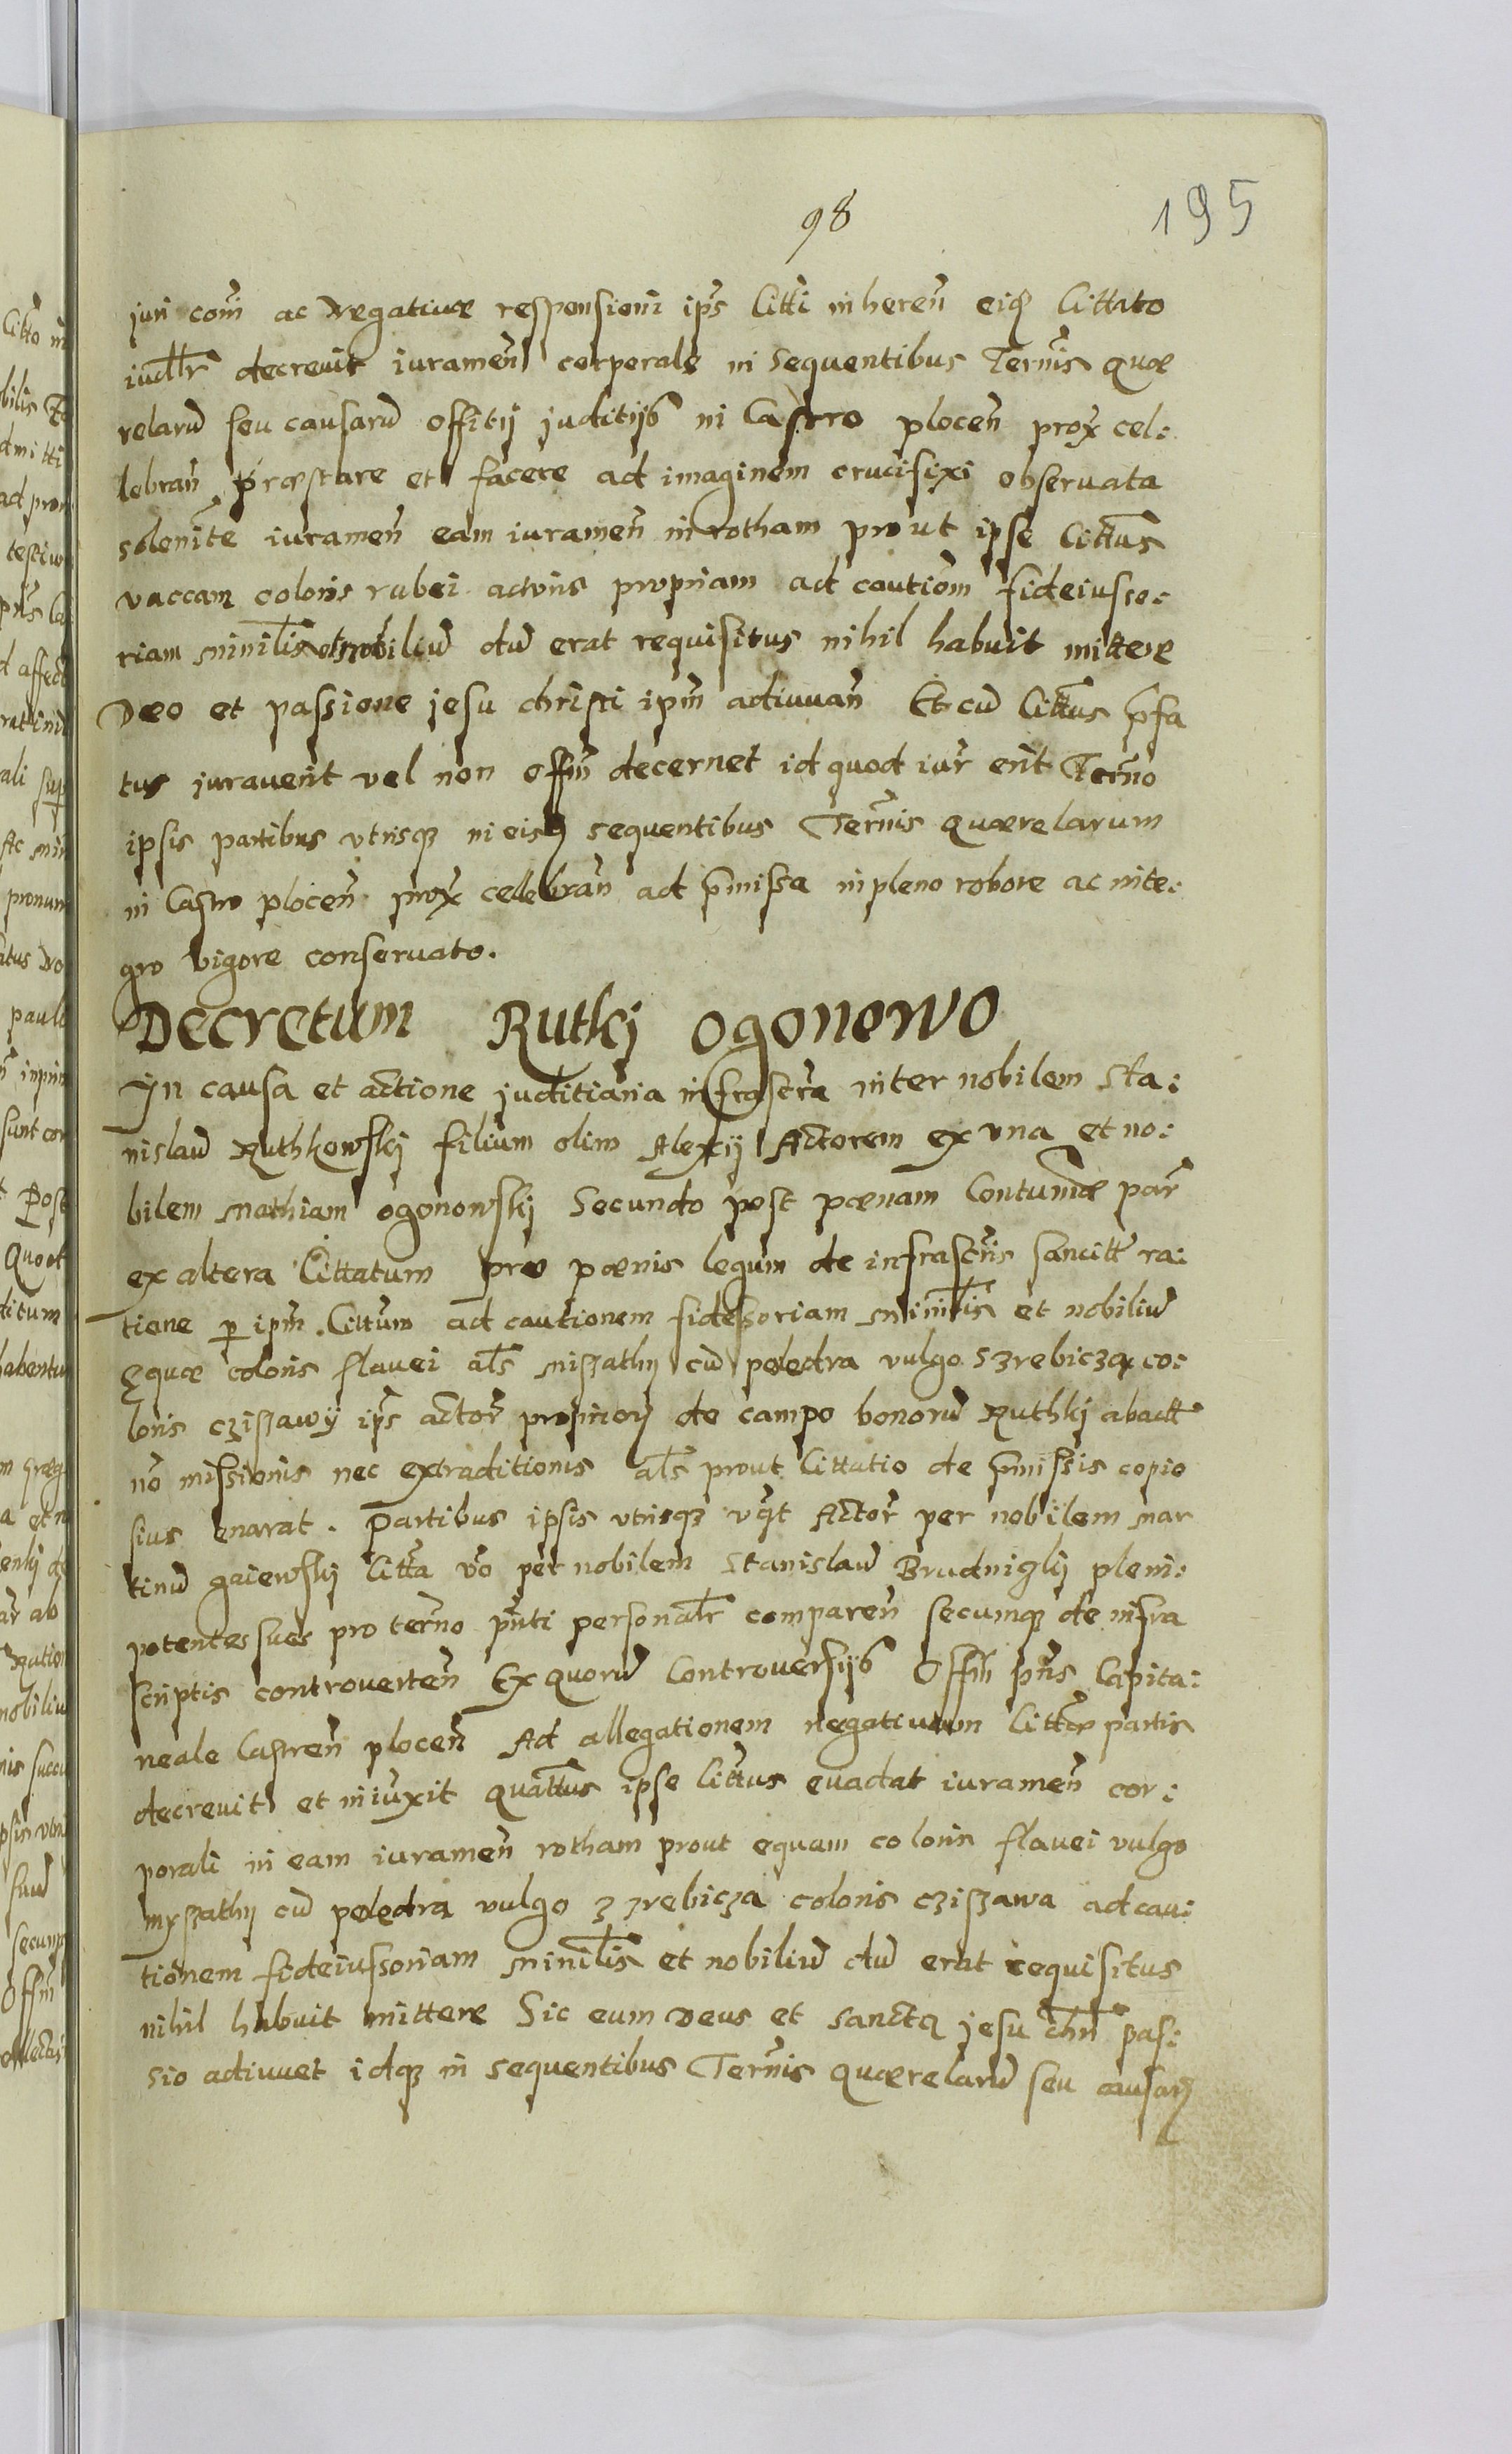 98
195
juri com̄i ac Negativæ responsioni ip̄s Citt̄i inheren̄ eiq̄ Cittato
iudl̄r decrevit iuramen̄ corporale in sequentibus Ter̄nis quæ
relarū seu causarū offitij juditijs in Castro plocen̄ prox̄ cel:
lebran̄ præstare et facere ad imaginem crucifixi observata
solenit̄e iuramen̄ eam iuramen̄ in rotham prout ipse Citt̄us
vaccam coloris rubei actoris propriam ad caution̄ fideiusso:
riam minil̄is et nobiliū dū erat requisitus nihil habuit mittere
Deo et passione jesu christi ip̄m adiuvan̄ Et cū Citt̄us p̄fa
tus juraverit vel non off̄m decernet id quod iur̄ erit Ter̄no
ipsis partibus utrisq3 in eisd̄ sequentibus Ter̄nis quærelarum
in Castro plocen̄ prox̄ celebran̄ ad p̄missa in pleno robore ac inte:
gro vigore conservato.
Decretum Rutkj ogonowo
In causa et actione juditiaria infrascr̄a inter nobilem Sta:
nislaū Ruthkowskj filium olim Alexij Actorem ex una et no:
bilem Mathiam ogonowskj Secundo post pœnam Contumā̄e par̄
ex altera Cittatum pro pœnis legum de infrascr̄is sancitt̄ ra:
tione p ip̄m Citt̄um ad cautionem fidessoriam minil̄is et nobiliū
Equæ coloris flavei al̄s miszathy cū poledra vulgo szrebicza co:
loris cziszawy ip̄s actor̄ propriorj de campo bonorū Ruthkj abact̄
nō missionis nec extraditionis al̄s prout Cittatio de p̄missis copio
sius enarat. Partibus ipsis utrisq3 vq̄t Actor̄ per nobilem Mar
tinū gaiewskj Citt̄a v̄o per nobilem Stanislaū Brudnigkj pleni:
potentes suos pro ter̄no p̄nti personal̄r comparen̄ secumq3 de infra
scriptis controverten̄ Ex quorū Controversijs Off̄m p̄ns Capita:
neale Castren̄ plocen̄ Ad allegationem negativam Citt̄æ partis
decrevit et iniūxit quatt̄us ipse Citt̄us evadat iuramen̄ cor:
porali in eam iuramen̄ rotham prout equam coloris flavei vulgo
myszathy cū poledra vulgo zrebicza coloris cziszawa ad cau:
tionem fideiussoriam minil̄is et nobiliū dū erat requisitus
nihil habuit mittere Sic eum Deus et sancta jesu chr̄i pas:
sio adiuvet idq3 in sequentibus Ter̄nis quærelarū seu causarj